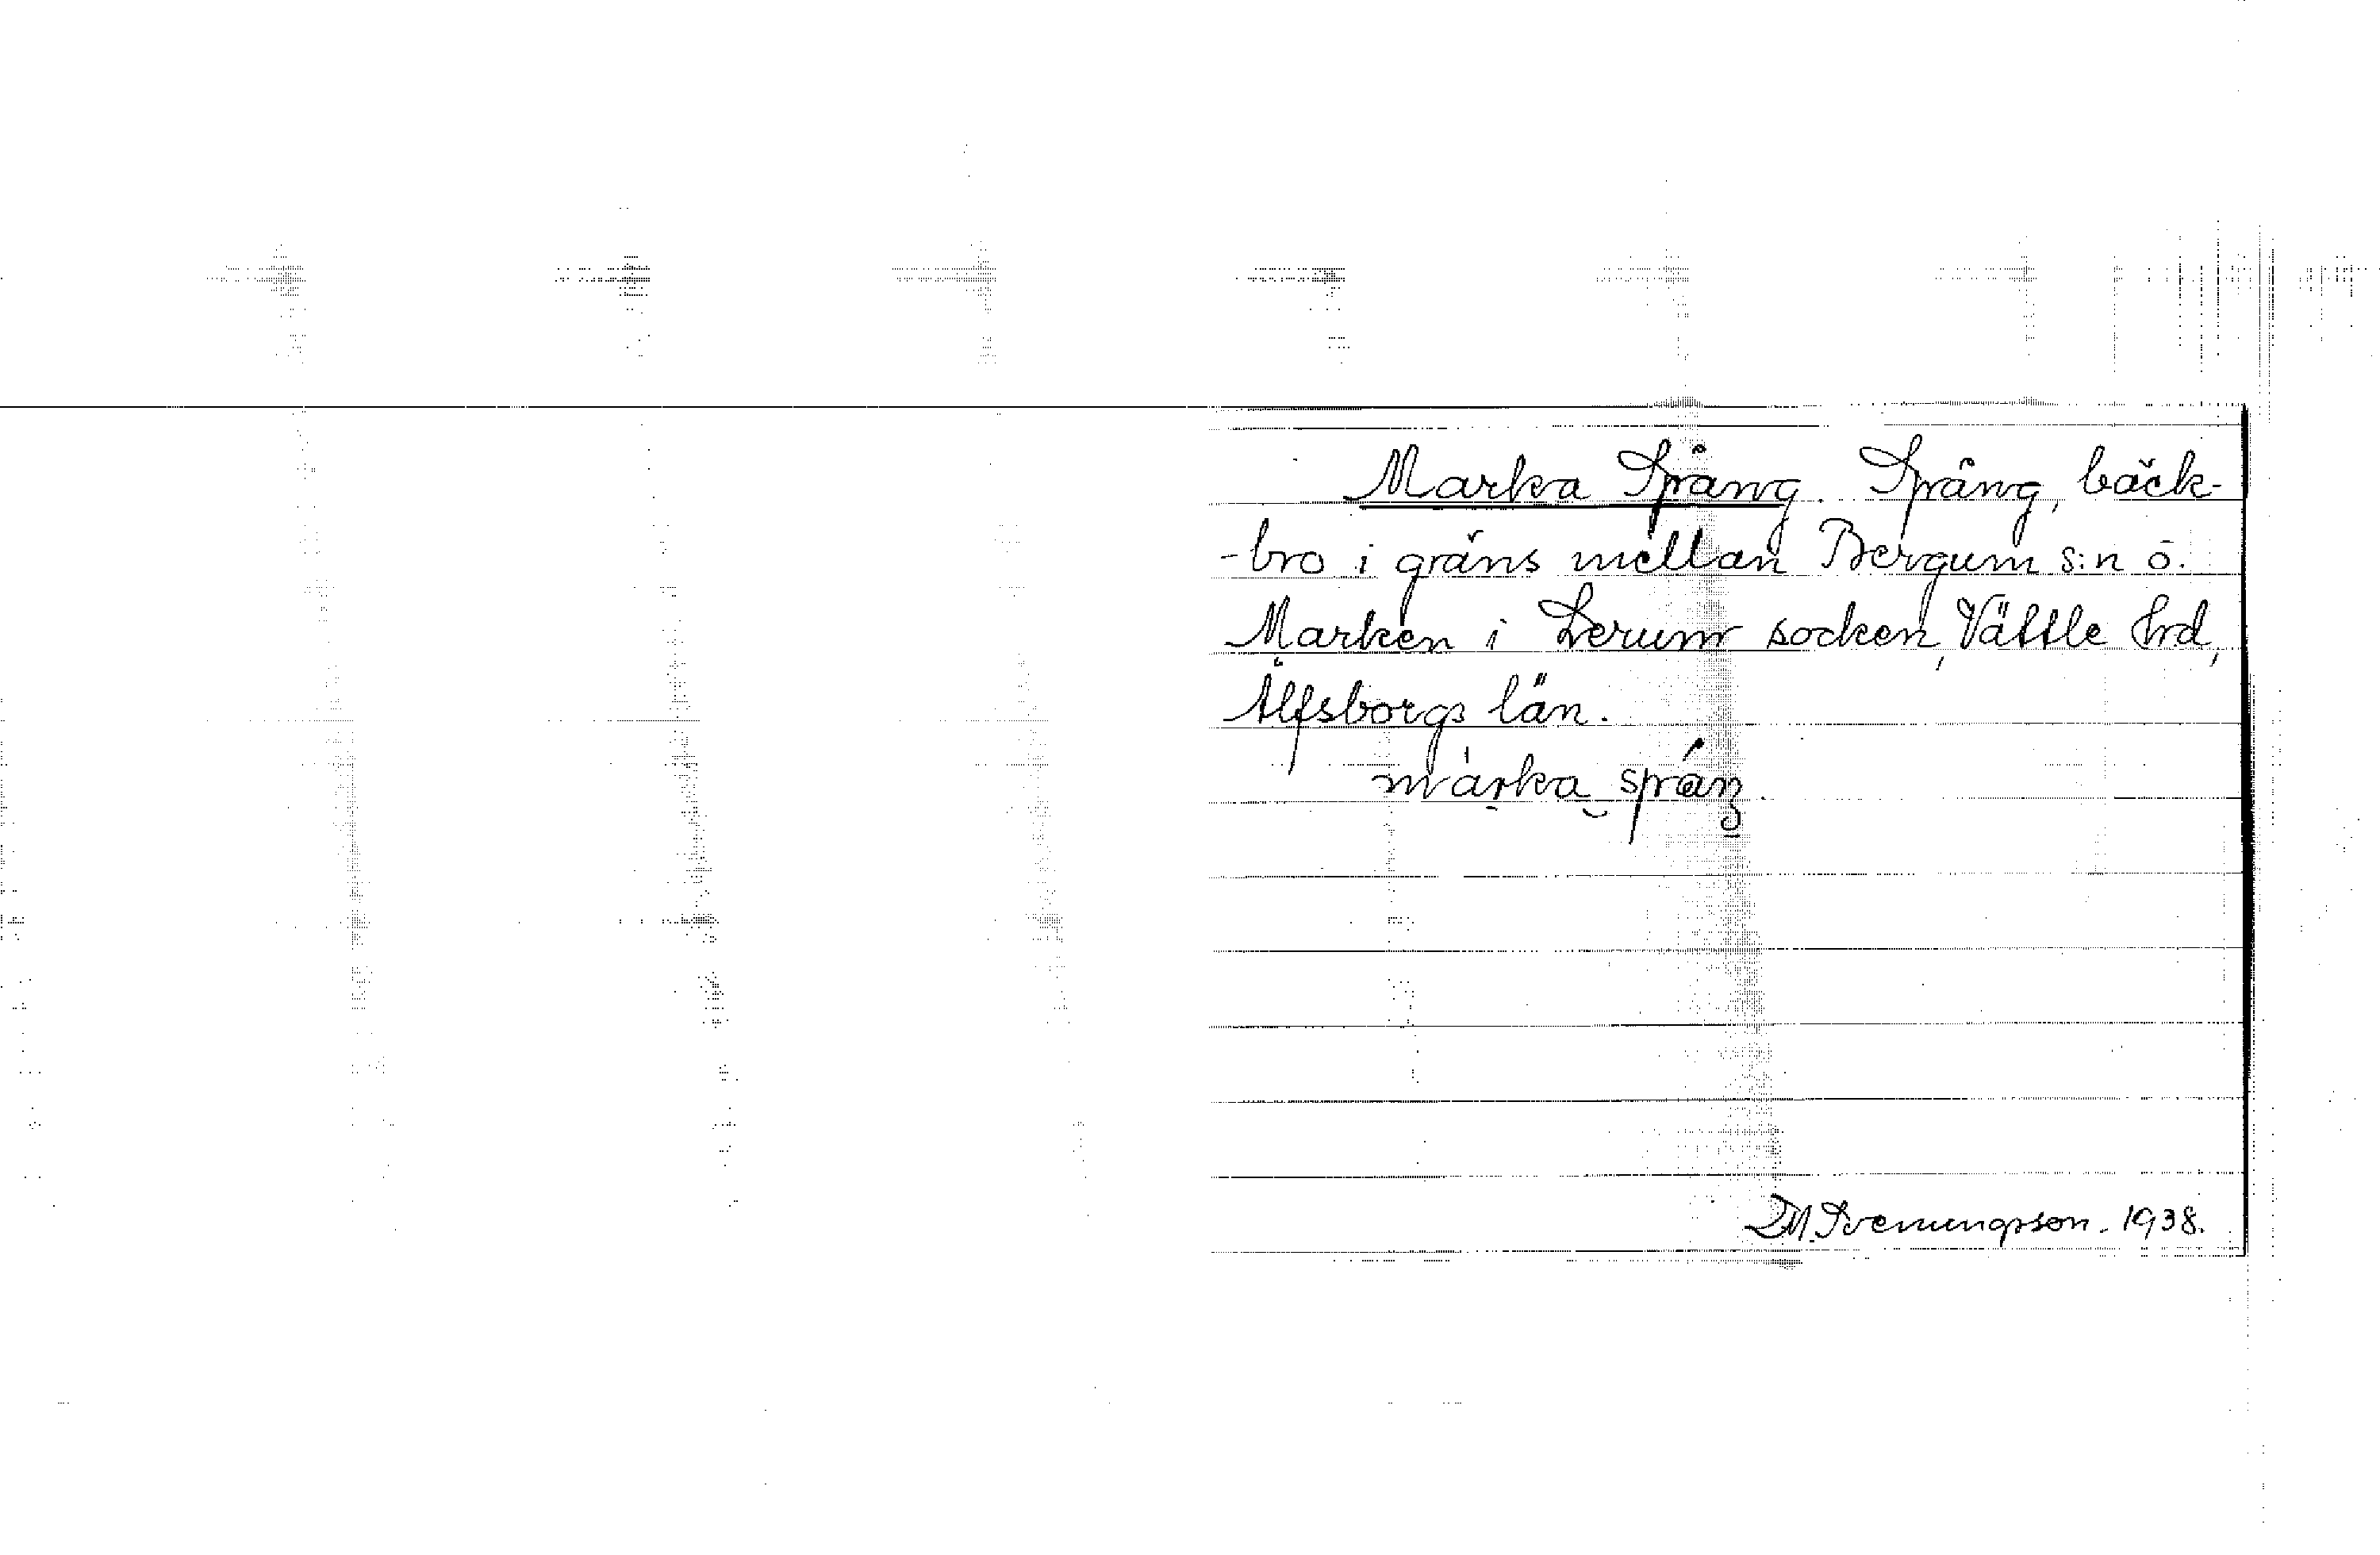 Marka Spång. Spång, bäck-
-bro i gräns mellan Bergum s:n o.
Marken i Lerum socken, Vättle hrd,
Älfsborgs län.
marka språŋ.
D.M. Svenungsson. 1938.